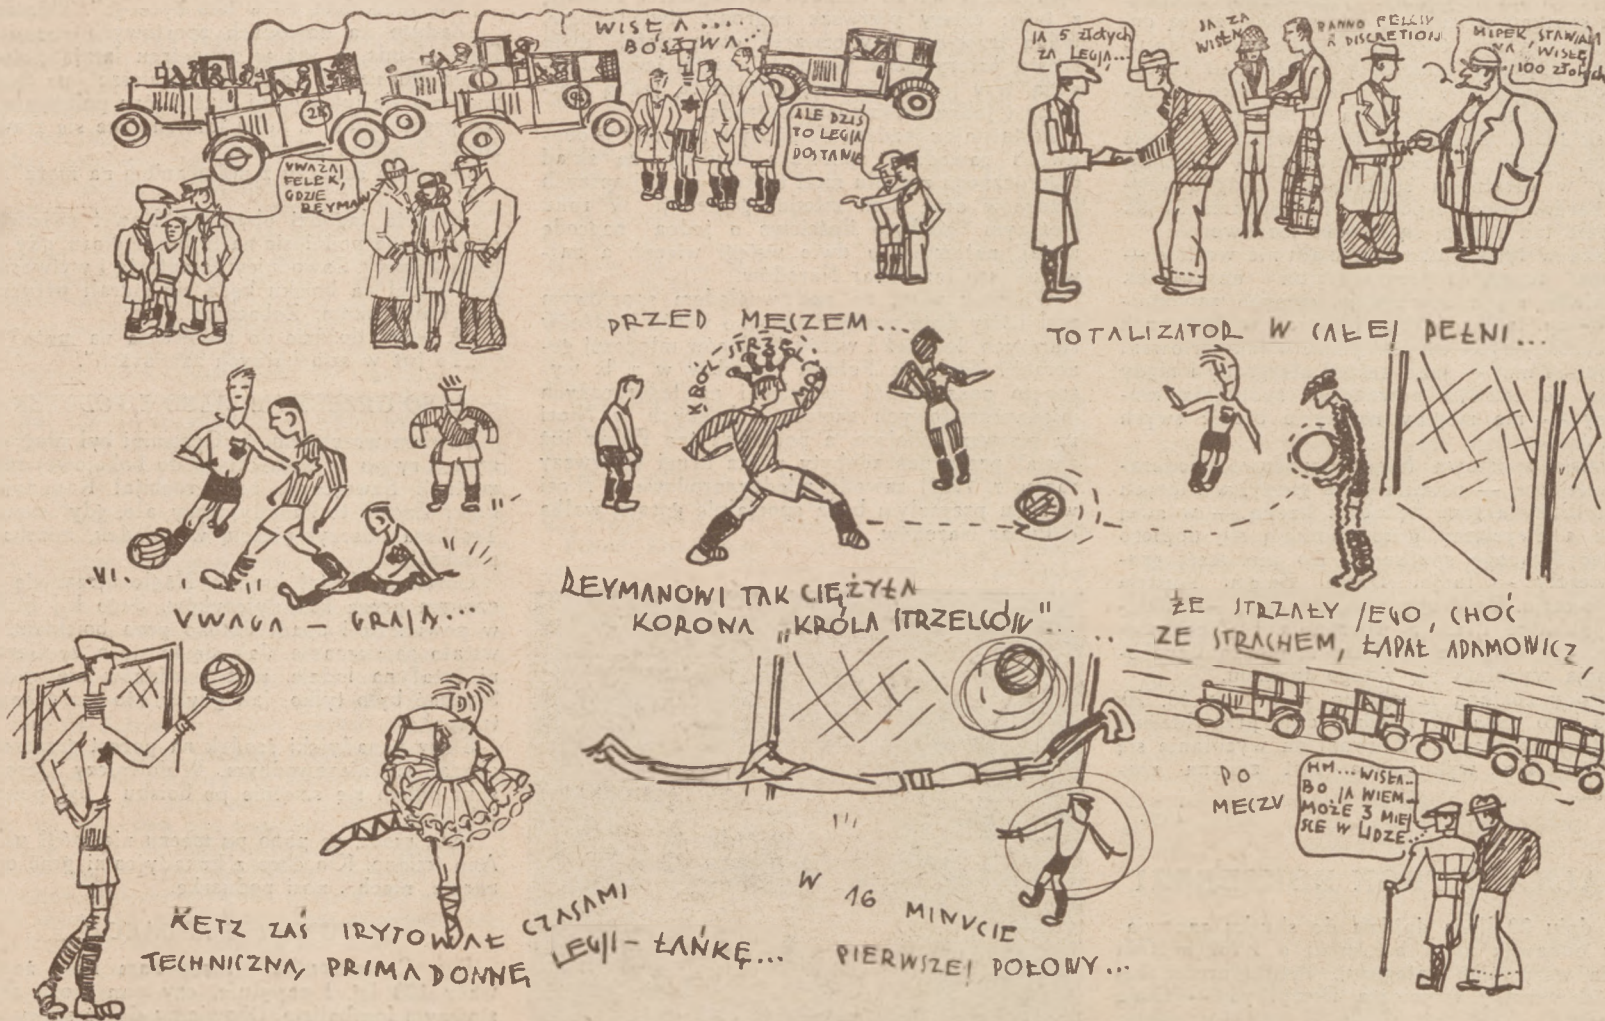 WISŁA....
BÓSTWA...
UWAŻAJ
FELEK,
GDZIE
REYMAN
ALE DZIŚ
TO LEGJA
DOSTANIE
PRZED MECZEM...
JA 5 złotych
ZA LEGJĄ...
JA ZA
WISŁĄ
PANNO FELCIU
À DISCRETION
HIPEK, STAWIAM
NA WISŁĘ
100 złotych
TOTALIZATOR W CAŁEJ PEŁNI...
UWAGA - GRAJĄ...
KRÓL STRZEL
REYMANOWI TAK CIĘŻYŁA
KORONA „KRÓLA STRZELCÓW".....
ŻE STRZAŁY JEGO, CHOĆ
ZE STRACHEM, ŁAPAŁ ADAMOWICZ,
KETZ ZAŚ IRYTOWAŁ CZASAMI
TECHNICZNĄ, PRIMADONNĘ LEGJI - ŁAŃKĘ...
W 16 MINUCIE
PIERWSZEJ POŁOWY...
PO
MECZU
HM... WISŁA..
BO JA WIEM..
MOŻE 3 MIEJ
SCE W LIDZE..